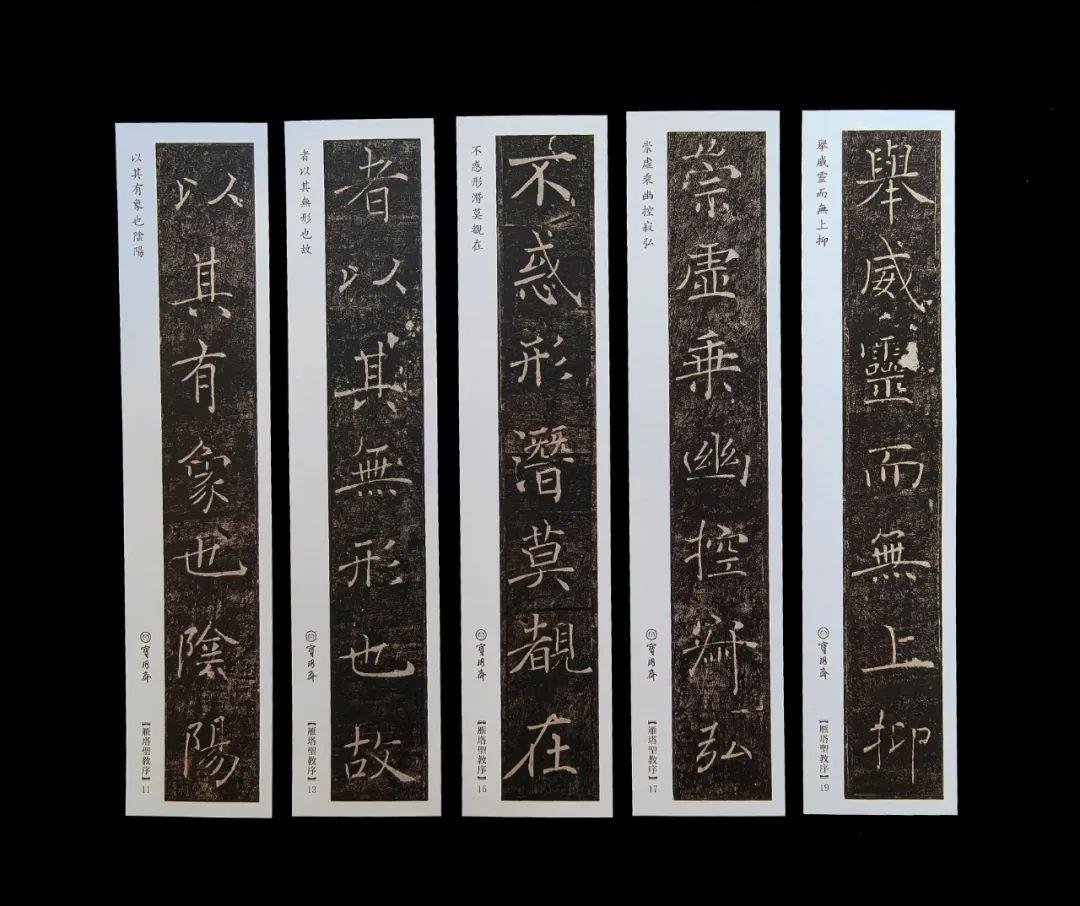 以其有象也陰陽
以其有象也陰陽
寶玥齋
【雁塔聖教序】11
者以其無形也故
者以其無形也故
寶玥齋
【雁塔聖教序】13
不惑形潛莫覩在
不惑形潛莫覩在
寶玥齋
【雁塔聖教序】15
崇虛乘幽控寂弘
崇虛乘幽控寂弘
寶玥齋
【雁塔聖教序】17
舉威靈而無上抑
舉威靈而無上抑
寶玥齋
【雁塔聖教序】19